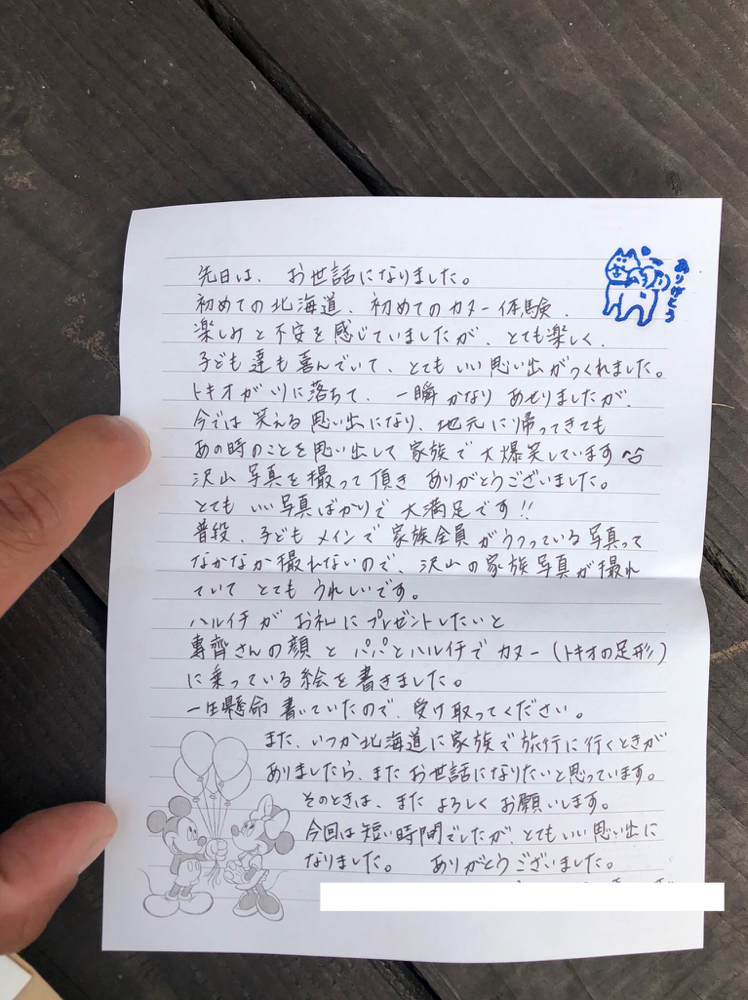 ありがとう
先日は、お世話になりました。
初めての北海道、初めてのカヌー体験、
楽しみと不安を感じていましたが、とても楽しく、
子ども達も喜んでいて、とてもいい思い出がつくれました。
トキオが川に落ちて、一瞬かなりあせりましたが、
今では笑える思い出になり、地元に帰ってきても
あの時のことを思い出して家族で大爆笑しています^^
沢山写真を撮って頂きありがとうございました。
とてもいい写真ばかりで大満足です!!
普段、子どもメインで家族全員がうつっている写真って
なかなか撮れないので、沢山の家族写真が撮れ
ていてとてもうれしいです。
ハルイチがお礼にプレゼントしたいと
専齊さんの顔とパパとハルイチでカヌー(トキオの足形)
に乗っている絵を書きました。
一生懸命書いていたので、受け取ってください。
また、いつか北海道に家族で旅行に行くときが
ありましたら、またお世話になりたいと思っています。
そのときは、またよろしくお願いします。
今回は短い時間でしたが、とてもいい思い出に
なりました。 ありがとうございました。